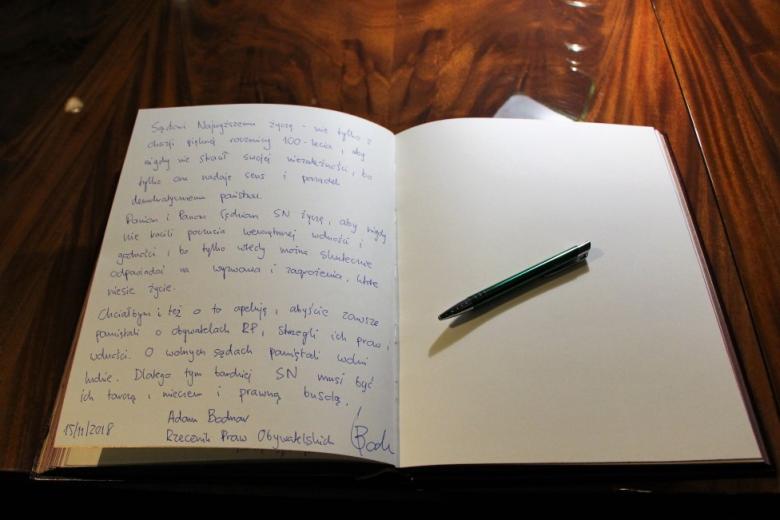 Sądowi Najwyższemu życzę - nie tylko z
okazji pięknej rocznicy 100-lecia, aby
nigdy nie stracił swojej niezależności, bo
tylko ona nadaje sens i porządek
demokratycznemu państwu.
Paniom i Panom Sędziom SN życzę, aby nigdy
nie tracili poczucia wewnętrznej wolności i
godności, bo tylko wtedy można skutecznie
odpowiadać na wyzwania i zagrożenia, które
niesie życie.
Chciałbym i też o to apeluję, abyście zawsze
pamiętali o obywatelach RP, strzegli ich praw i
wolności. O wolnych sądach pamiętali wolni
ludzie. Dlatego tym bardziej SN musi być
ich tarczą, mieczem i prawną busolą.
Adam Bodnar
15/11/2018 Rzecznik Praw Obywatelskich